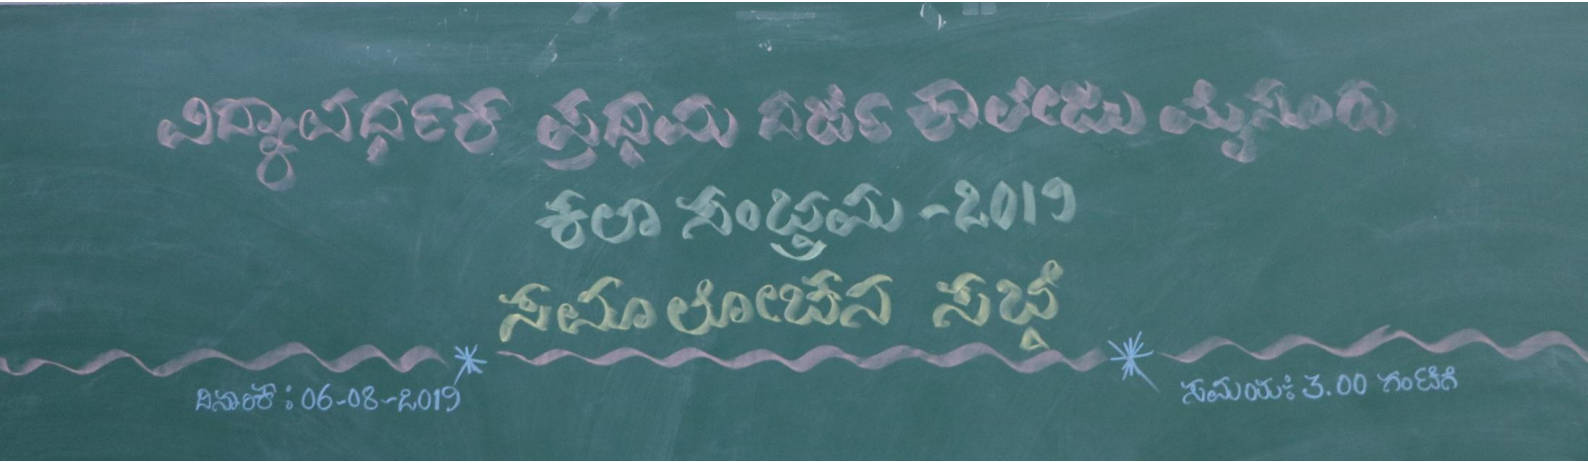 ವಿದ್ಯಾವರ್ಧಕ ಪ್ರಥಮ ದರ್ಜೆ ಕಾಲೇಜು ಮೈಸೂರು
ಕಲಾ ಸಂಭ್ರಮ -2019
ಸಮಾಲೋಚನ ಸಭೆ
ದಿನಾಂಕ : 06-08-2019
ಸಮಯ: 3.00 ಗಂಟೆಗೆ